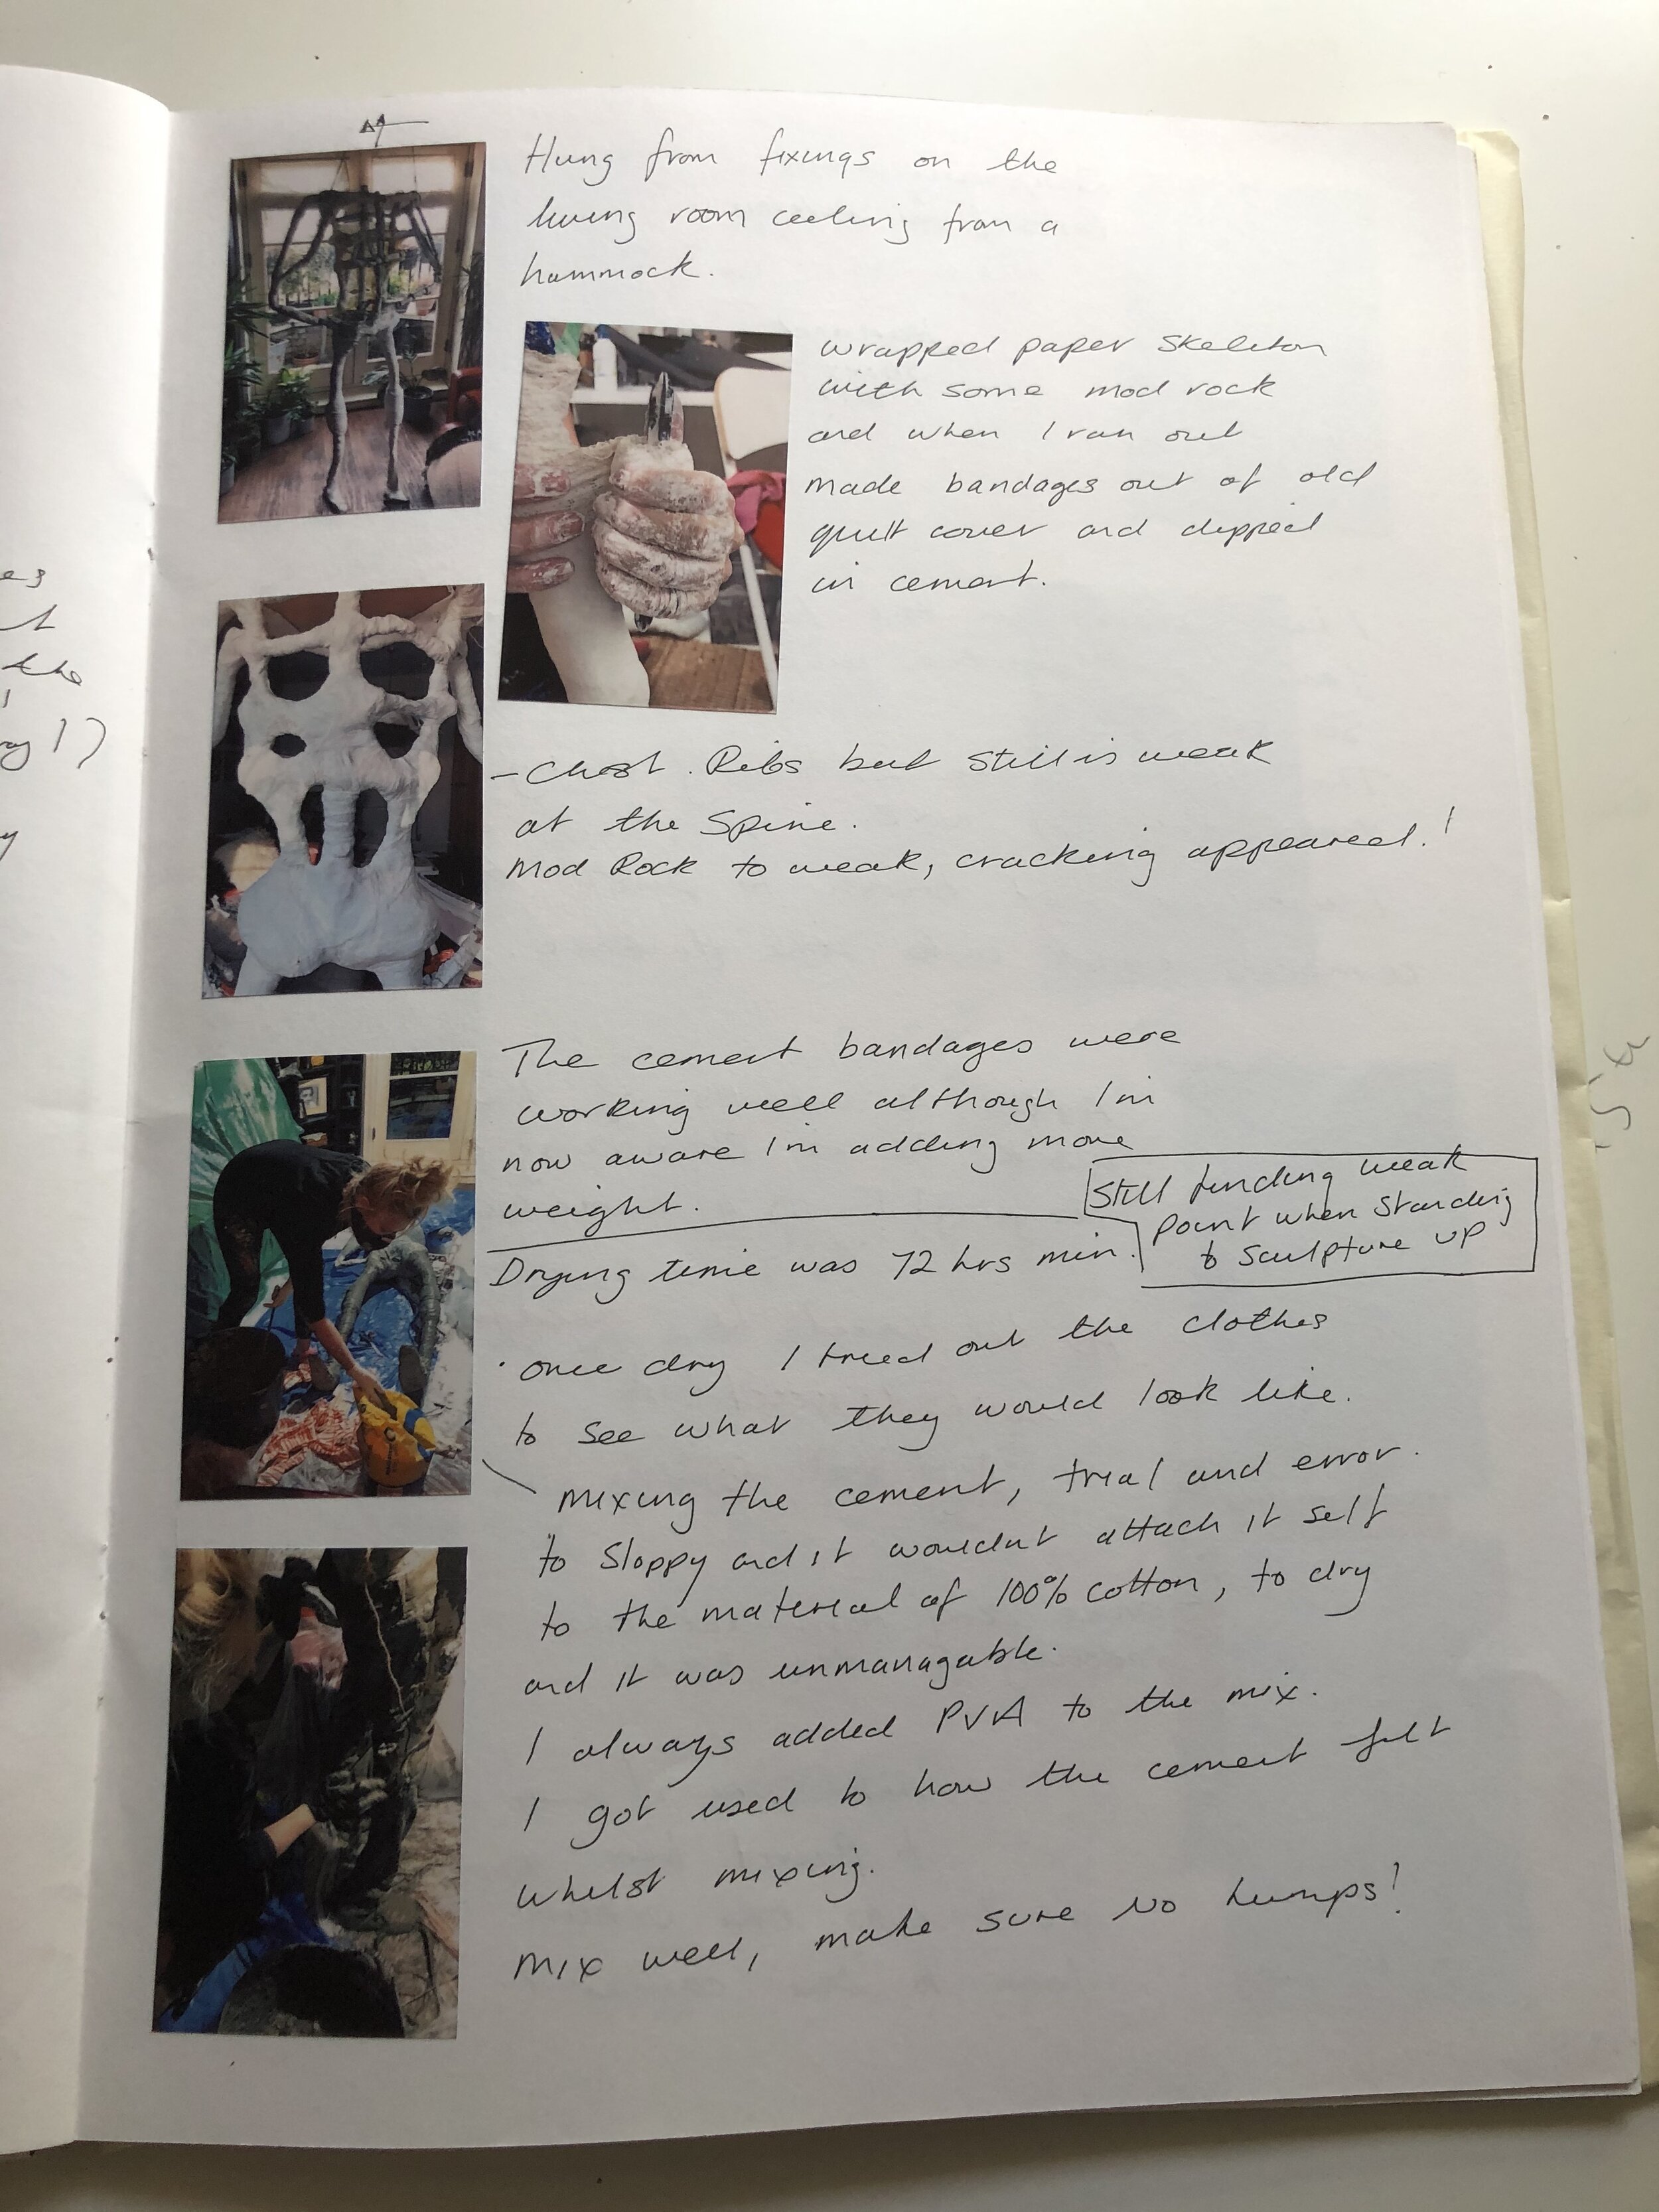 Hung from fixings on the
living room ceeling from a
hammock.
wrapped paper skeleton
with some mod rock
and when I ran out
made bandages out of old
quilt cover and dipped
in cement.
- Chest. Ribs but still is weak
at the Spine.
Mod Rock to weak, cracking appeared!
The cement bandages were
working well although I'm
now aware I'm adding more
weight.
Still finding weak
point when standing
Sculpture up
Drying time was 72 hrs min.
· once dry I tried out the clothes
to see what they would look like.
mixing the cement, trial and error.
to sloppy and it wouldnt attach it self
to the material of 100% cotton, to dry
and it was unmanagable.
I always added PVA to the mix.
I got used to how the cement felt
whilst mixing.
Mix well, make sure no lumps!
es
the